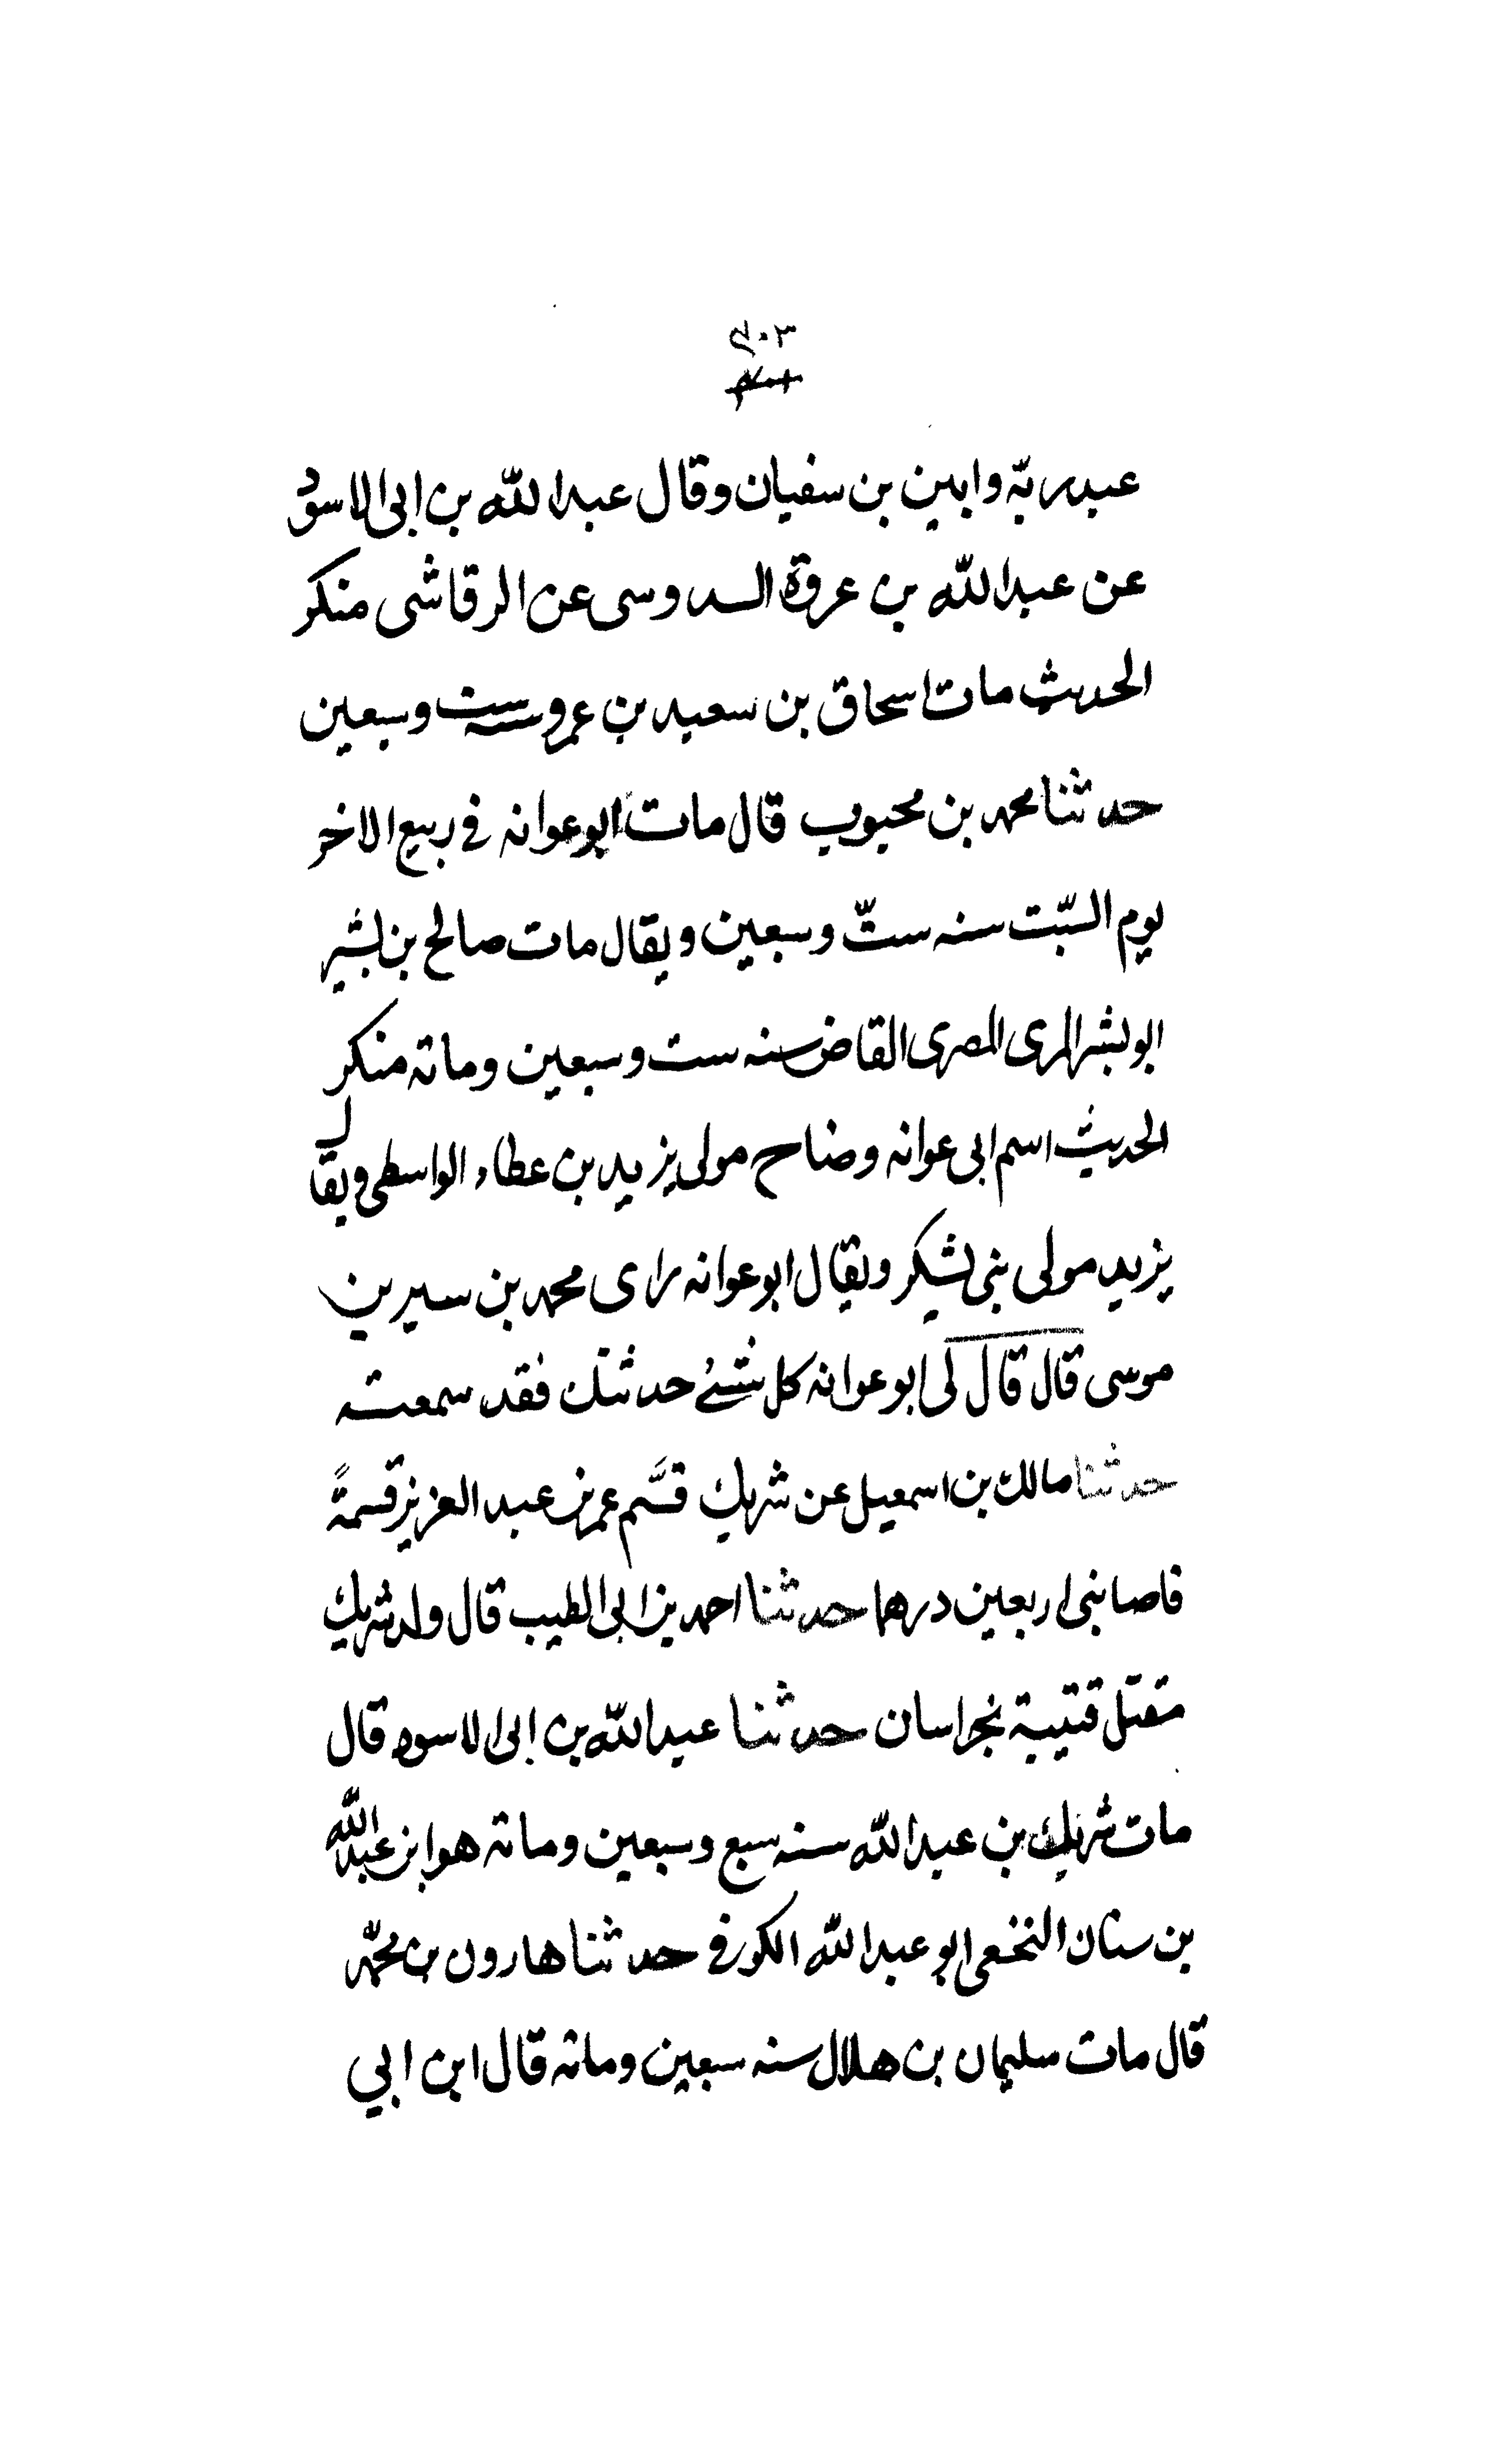 ٢٠٣
عبد ربه وابين بن سفيان وقال عبد الله بن ابى الاسود
عن عبد الله بن عروة السدوسى عن الرقاشى منكر
الحديث مات اسحاق بن سعيد بن عمرو سنه ست وسبعين
حدثنا محمد بن محبوب قال مات ابو عوانه فى ربيع الاخر
يوم السّبت سنه ستّ وسبعين ويقال مات صالح بن بشير
ابو بشر المرى المصرى القاص سنه ست وسبعين ومائة منكر
الحديث اسم ابى عوانه وضاح مولى يزيد بن عطاء الواسطى ويقال
يزيد مولى بنى يشكر ويقال ابو عوانه راى محمد بن سيرين
موسى قال قال لى ابو عوانه كل شئ حدثتك فقد سمعته
حدثنا مالك بن اسمعيل عن شريك قسَّم عمر بن عبد العزيز قسمةً
فاصابنى اربعين درهما حدثنا احمد بن ابى الطيب قال ولد شريك
مقتل قتيبة بخراسان حدثنا عبد الله بن ابى الاسود قال
مات شريك بن عبد الله سنه سبع وسبعين ومائة هو ابن عبد الله
بن سنان النخعى ابو عبد الله الكوفى حدثنا هارون بن محمّد
قال مات سليمان بن هلال سنه سبعين ومائة قال ابن ابي